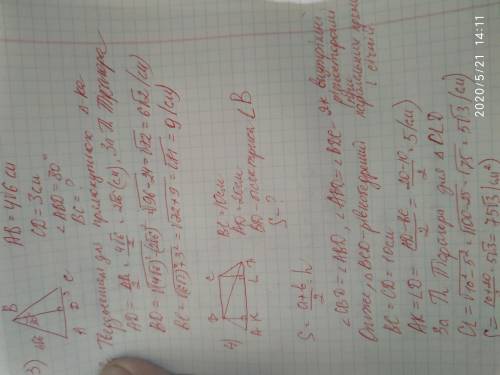 3)
B
4√6
A D C
AB = 4√6 см
CD = 3 см
∠ABD = 30°
BC = ?
AD = AB/2 = 4√6/2 = 2√6 (см), За Т. Піфагора
BD = √(4√6)² - (2√6)² = √96-24 = √72 = 6√2 (см)
BC = √(6√2)² + 3² = √72+9 = √81 = 9 (см)
4)
B C
A K L D
BC = 10см
AD = 20см
BD - бісектриса ∠B
S - ?
S = a+b/2 · h
∠CBD = ∠ABD, ∠ADB = ∠BDC - як внутрішні
різносторонні
при
паралельних прямих
і січній
Отже, △BCD - рівнобедрений
BC = CD = 10см
AK = LD = AD-BC/2 = 20-10/2 = 5 (см)
За Т. Піфагора для △CLD
CL = √10² - 5² = √100-25 = √75 = 5√3 (см)
S = 10+20/2 · 5√3 = 75√3 (см²)
2020/5/21 14:11